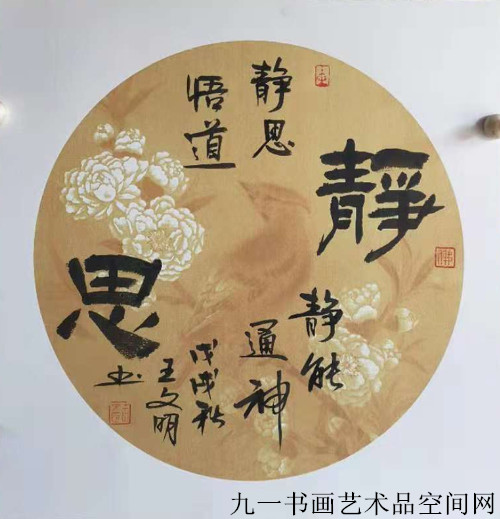 靜
思
静思
悟道
静能
通神
戊戌秋
王文明
书
九一书画艺术品空间网